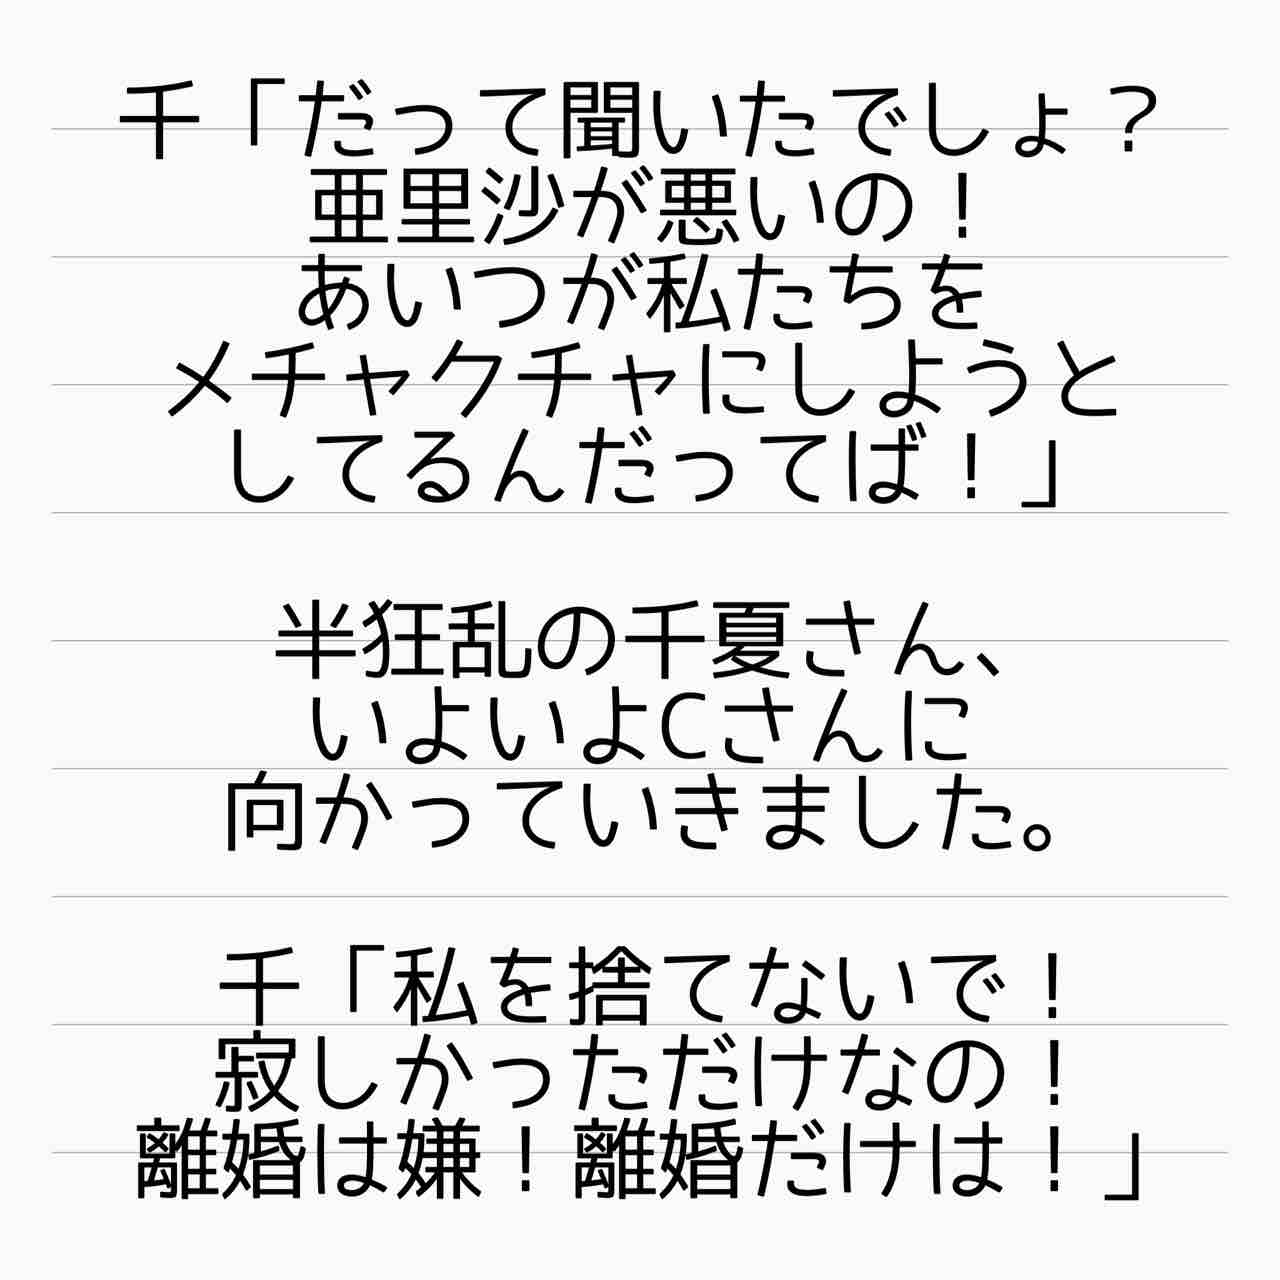 千「だって聞いたでしょ？
亜里沙が悪いの！
あいつが私たちを
メチャクチャにしようと
してるんだってば！」
半狂乱の千夏さん、
いよいよCさんに
向かっていきました。
千「私を捨てないで！
寂しかっただけなの！
離婚は嫌！離婚だけは！」